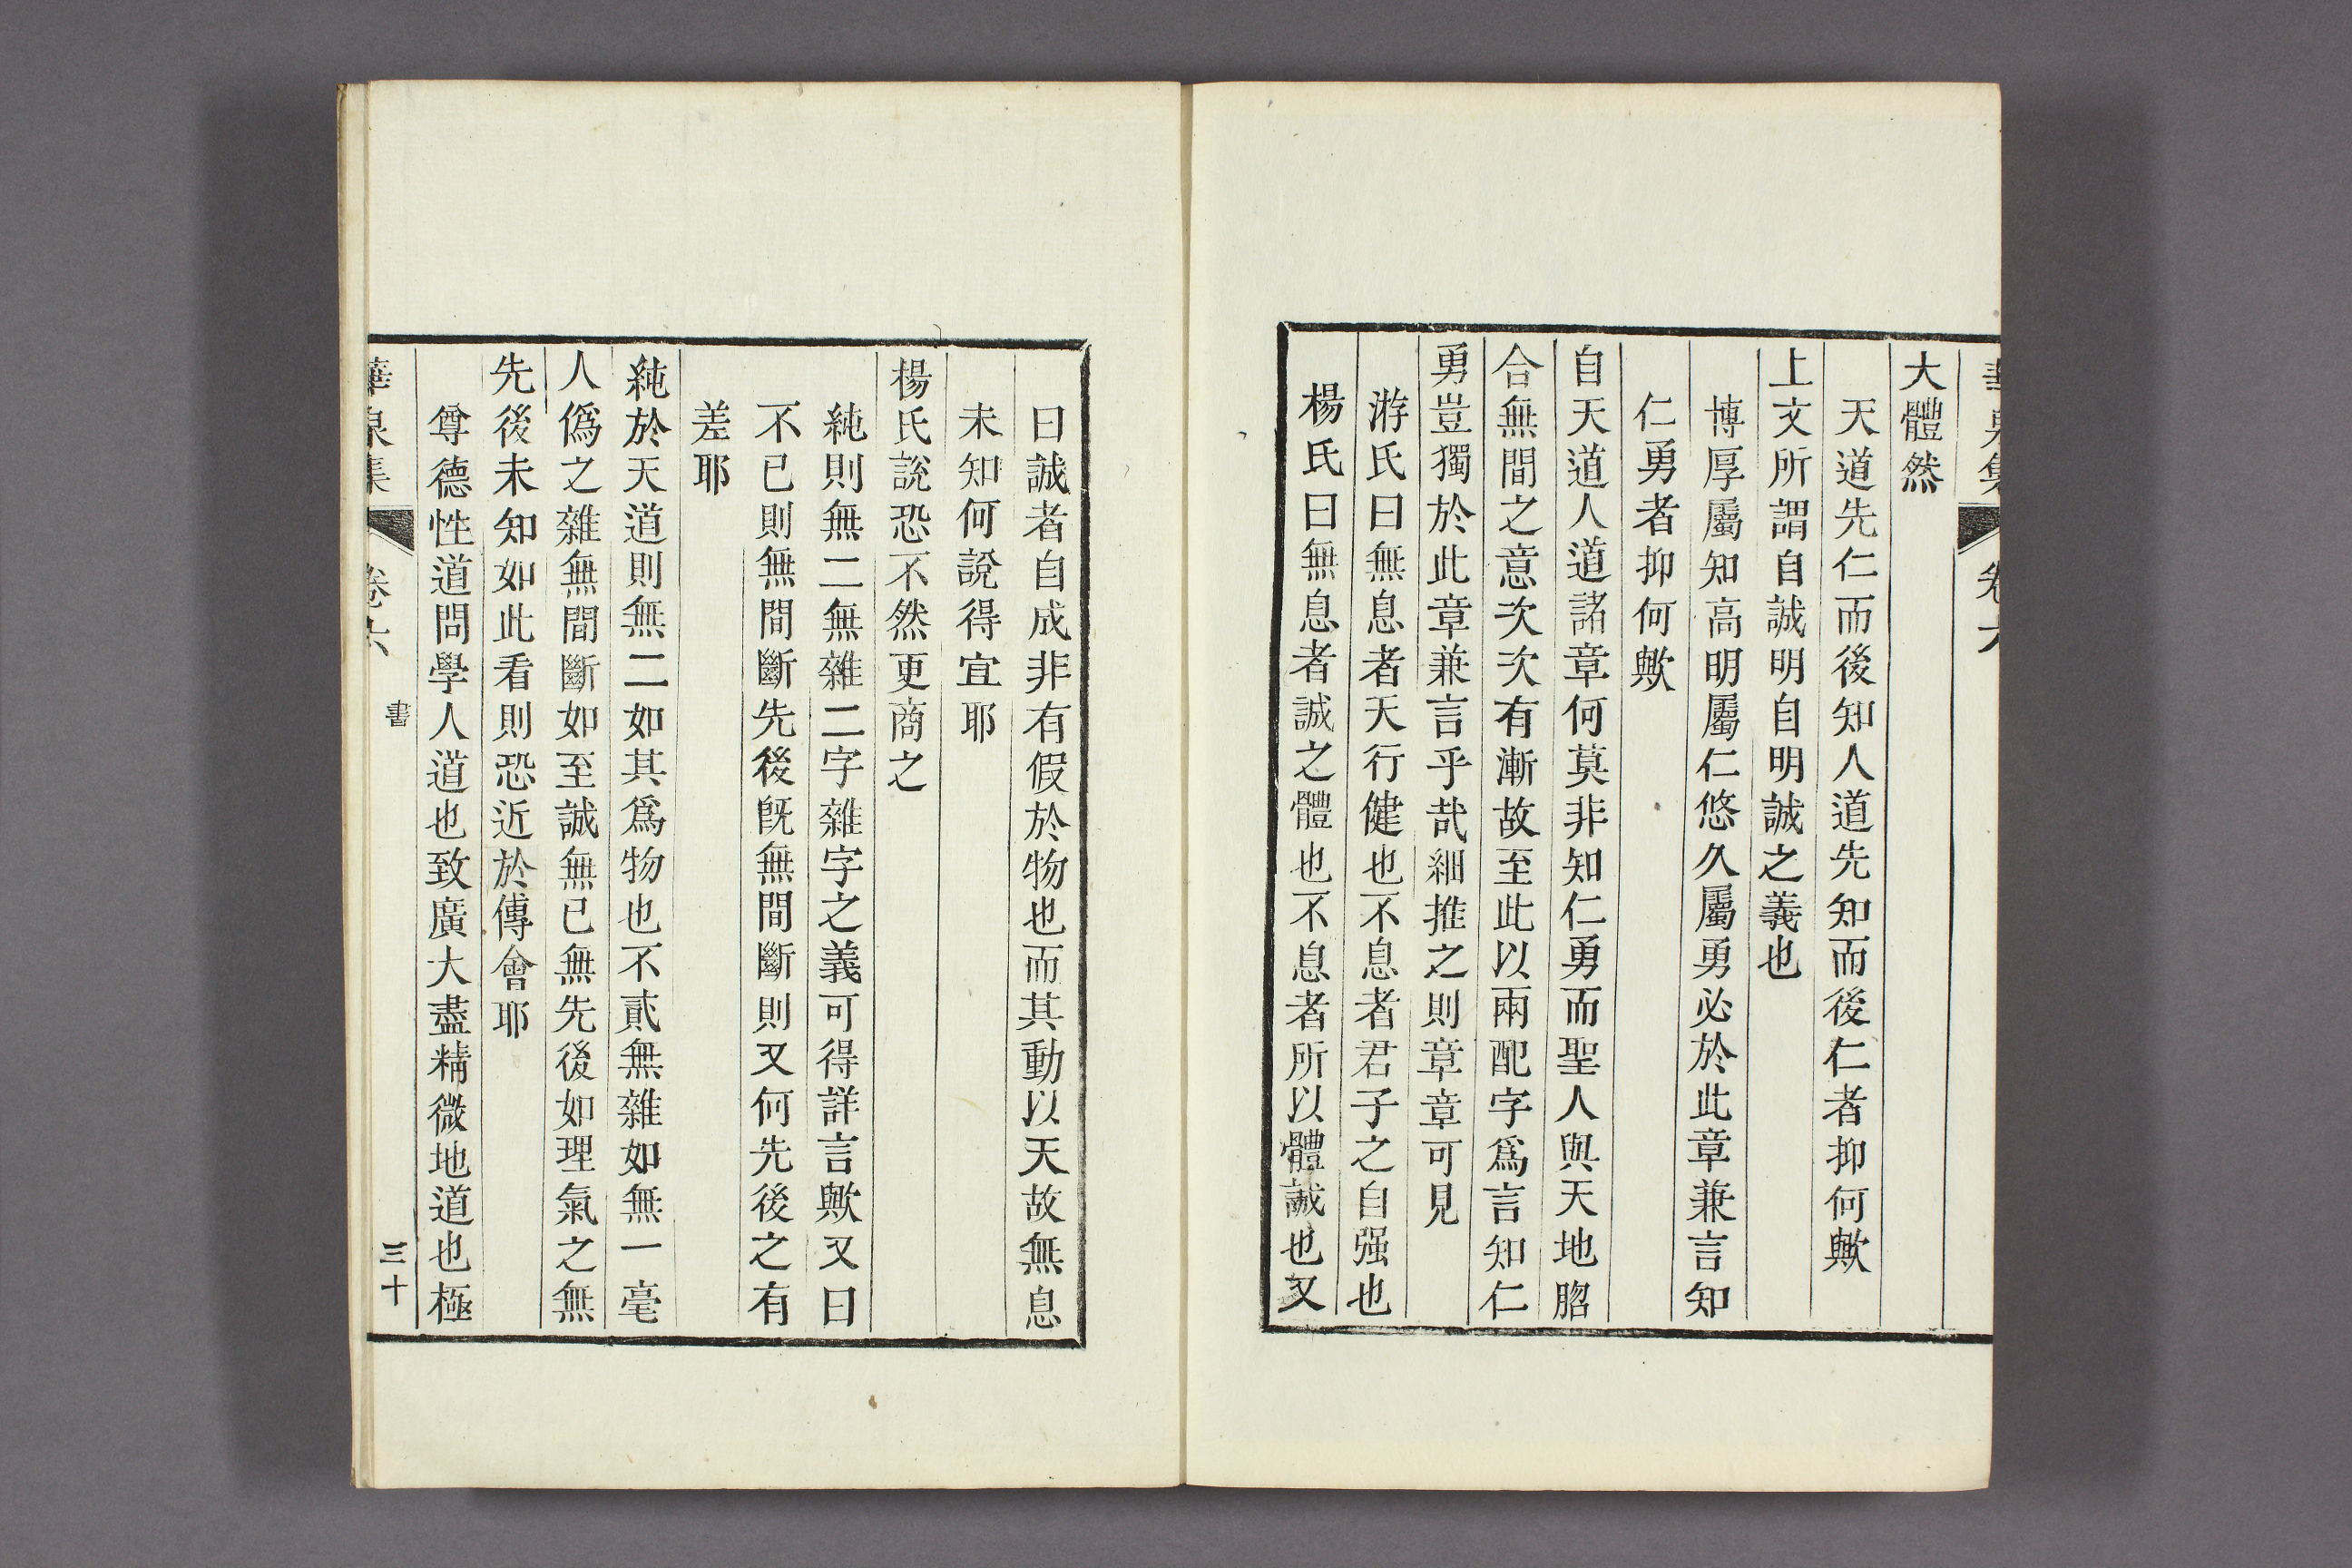 大體然
天道先仁而後知人道先知而後仁者抑何歟
上文所謂自誠明自明誠之義也
博厚屬知高明屬仁悠久屬勇必於此章兼言知
仁勇者抑何歟
自天道人道諸章何莫非知仁勇而聖人與天地脗
合無間之意次次有漸故至此以兩配字爲言知仁
勇豈獨於此章兼言乎哉細推之則章章可見
游氏曰無息者天行健也不息者君子之自强也
楊氏曰無息者誠之體也不息者所以體誠也又
曰誠者自成非有假於物也而其動以天故無息
未知何說得宜耶
楊氏說恐不然更商之
純則無二無雜二字雜字之義可得詳言歟又曰
不已則無間斷先後旣無間斷則又何先後之有
差耶
純於天道則無二如其爲物也不貳無雜如無一毫
人僞之雜無間斷如至誠無已無先後如理氣之無
先後未知如此看則恐近於傅會耶
尊德性道問學人道也致廣大盡精微地道也極
集 卷六 書 三十